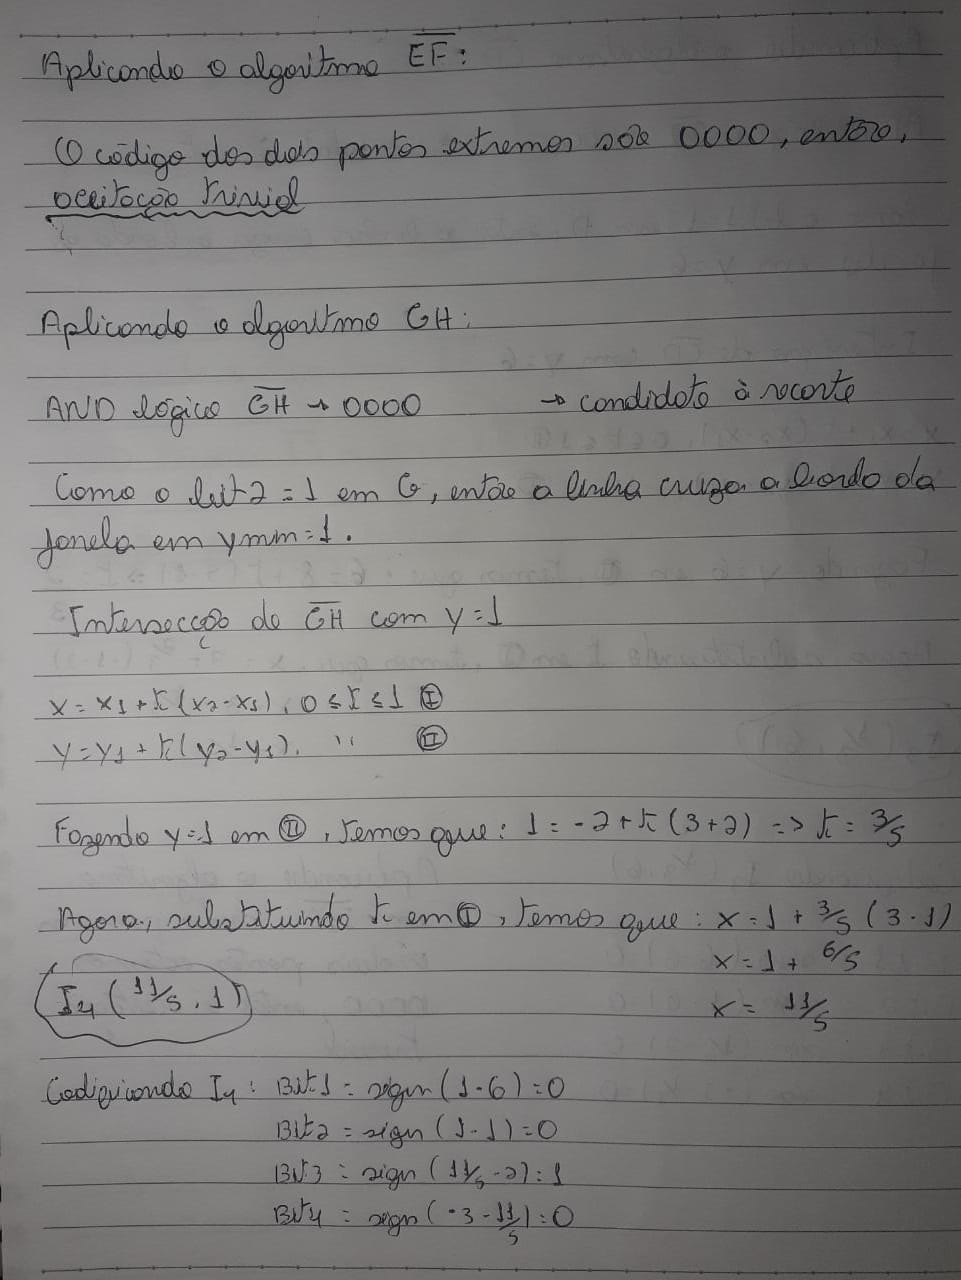 Aplicando o algoritmo EF:
O código dos dois pontos extremos são 0000, então,
aceitação trivial
Aplicando o algoritmo GH:
AND lógico GH → 0000 → candidato à recorte
Como o bit 2 = 1 em G, então a linha cruza a borda da
janela em ymin = 1.
Intersecção de GH com y = 1
x = x1 + t(x2 - x1), 0 ≤ t ≤ 1 Ⓘ
y = y1 + t(y2 - y1), '' Ⓘ Ⓘ
Fazendo y = 1 em II, temos que: 1 = -2 + t(3+2) => t = 3/5
Agora, substituindo t em I, temos que: x = 1 + 3/5 (3-1)
x = 1 + 6/5
I4 (11/5, 1) x = 11/5
Codificando I4: Bit 1 = sign(1-6) = 0
Bit 2 = sign(1-1) = 0
Bit 3 = sign(11/5 - 2) = 1
Bit 4 = sign(-3 - 11/5) = 0